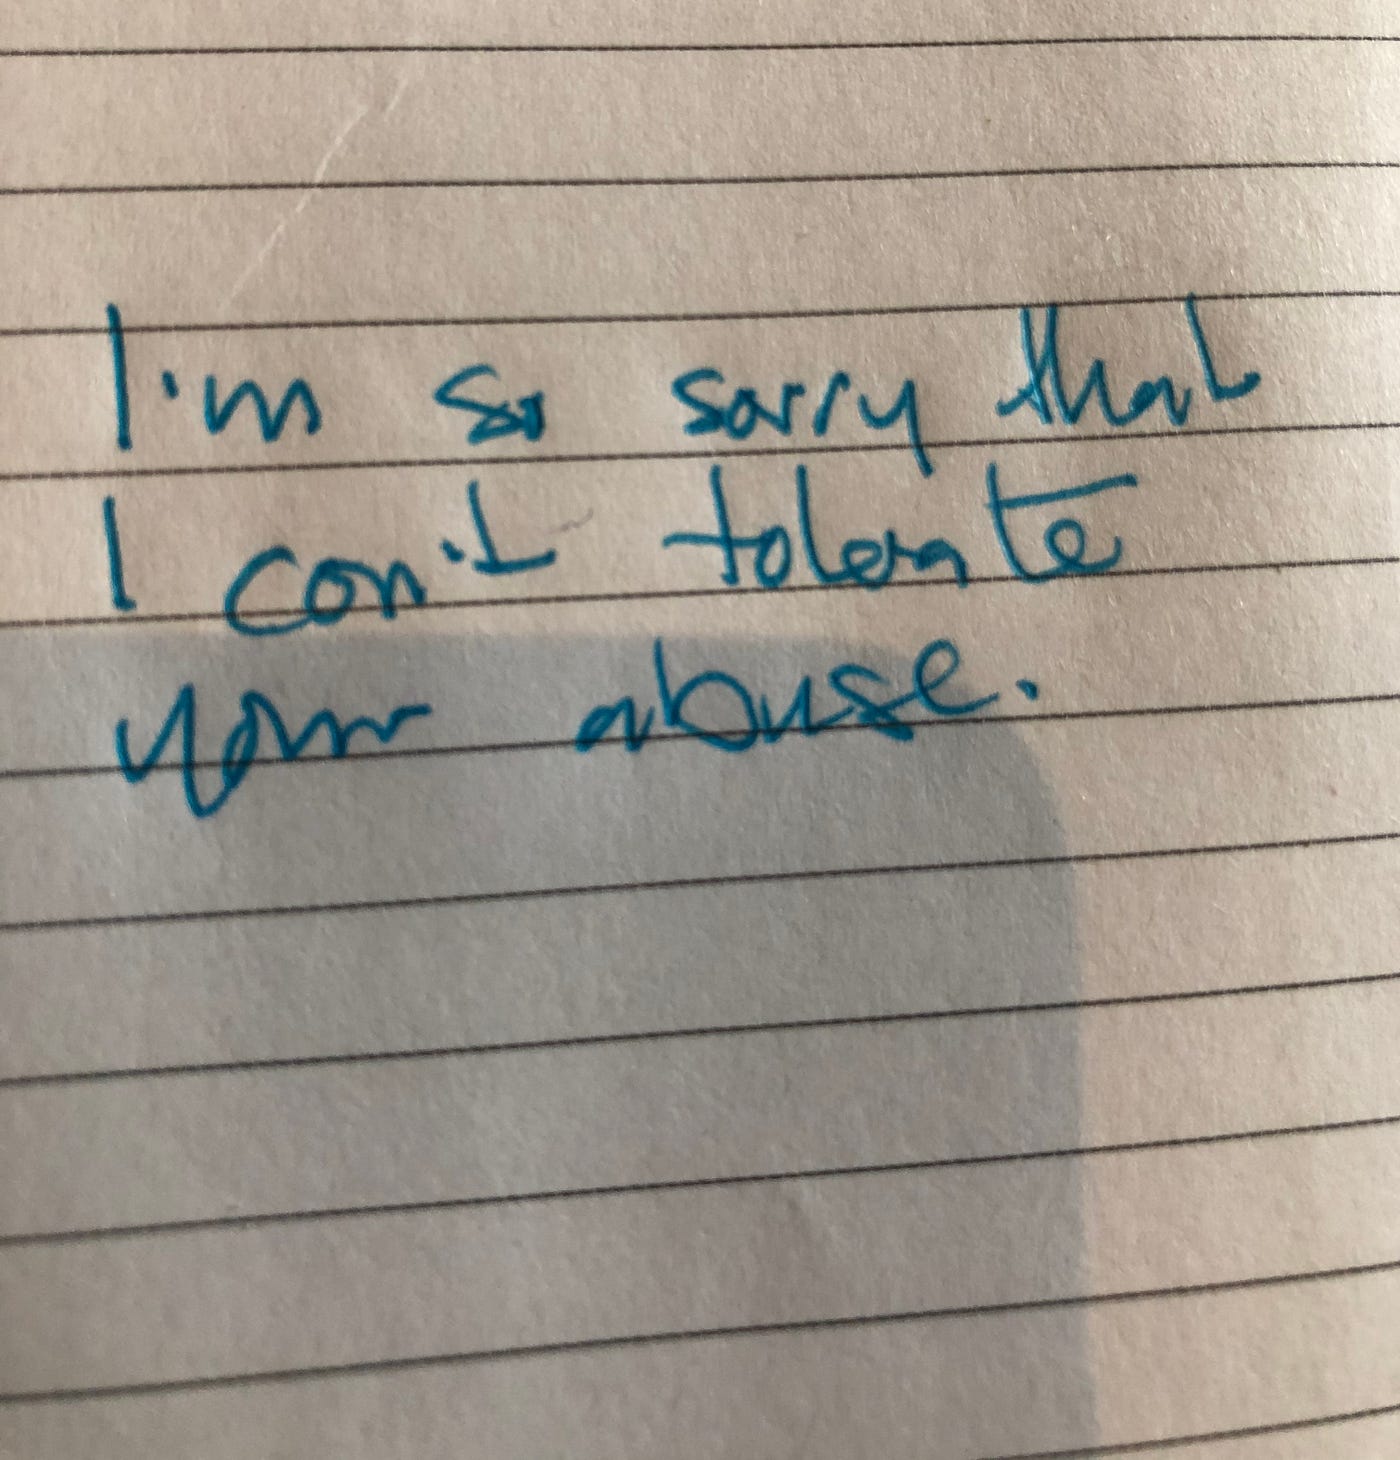 I'm so sorry that
I can't tolerate
your abuse.